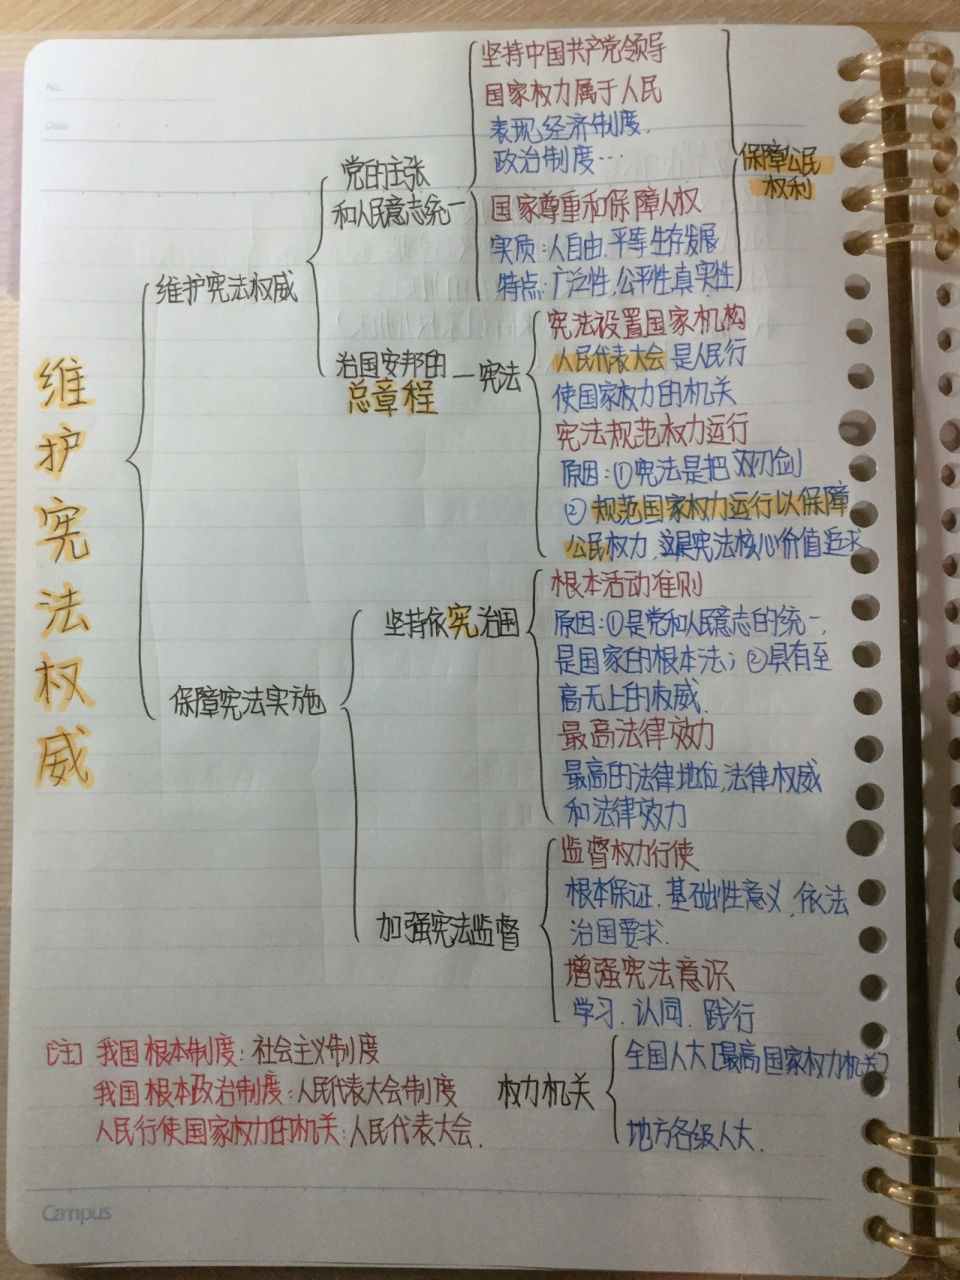 No.
Date
维护宪法权威
维护宪法权威
党的主张
和人民意志统一
坚持中国共产党领导
国家权力属于人民
表现:经济制度、
政治制度…
国家尊重和保障人权
实质:人自由、平等生存发展
特点:广泛性,公平性,真实性
保障公民
权利
治国安邦的
总章程
—宪法
宪法设置国家机构
人民代表大会是人民行
使国家权力的机关
宪法规范权力运行
原因:①宪法是把双刃剑
②规范国家权力运行以保障
公民权力,这是宪法核心价值追求
保障宪法实施
坚持依宪治国
根本活动准则
原因:①是党和人民意志的统一,
是国家的根本法;②具有至
高无上的权威.
最高法律效力
最高的法律地位,法律权威
和法律效力
加强宪法监督
监督权力行使
根本保证、基础性意义、依法
治国要求.
增强宪法意识
学习、认同、践行
[注] 我国根本制度:社会主义制度
我国根本政治制度:人民代表大会制度
人民行使国家权力的机关:人民代表大会.
权力机关
全国人大[最高国家权力机关]
地方各级人大.
Campus